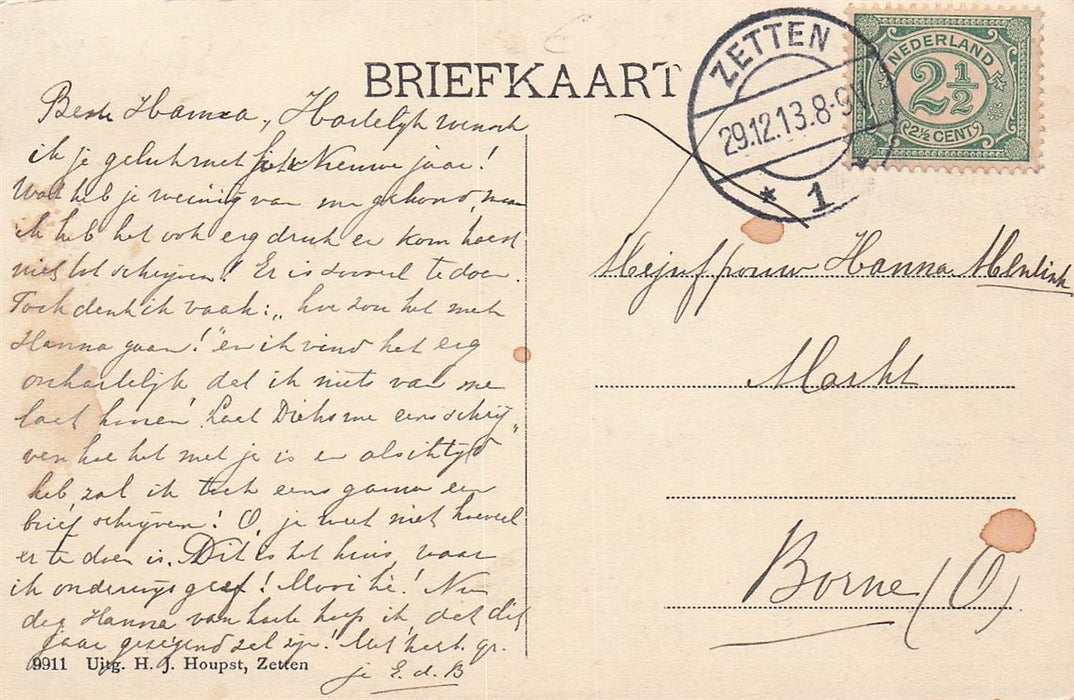 BRIEFKAART
ZETTEN
29.12.13.8-9V
* 1 *
NEDERLAND
2½
2½ CENT
Beste Hanna, Hartelijk wensch
ik je geluk met het Nieuwe jaar!
Wat heb je weinig van me gehoord, maar
ik heb het ook erg druk en kom haast
niet tot schrijven! Er is zooveel te doen.
Toch denk ik vaak: „hoe zou het met
Hanna gaan!" en ik vind het erg
onhartelijk dat ik niets van me
laat hooren! Laat Dieks me eens schrij„
ven hoe het met je is en als ik tijd
heb zal ik toch eens gauw een
brief schrijven! O, je weet niet hoeveel
er te doen is. Dit is het huis, waar
ik onderwijs geef! Mooi hè! Nu
dag Hanna van harte hoop ik, dat dit
jaar gezegend zal zijn! Met hart. gr.
je E. d. B
Mejuffrouw Hanna
Markt
Borne (O)
9911 Uitg. H. J. Houpst, Zetten